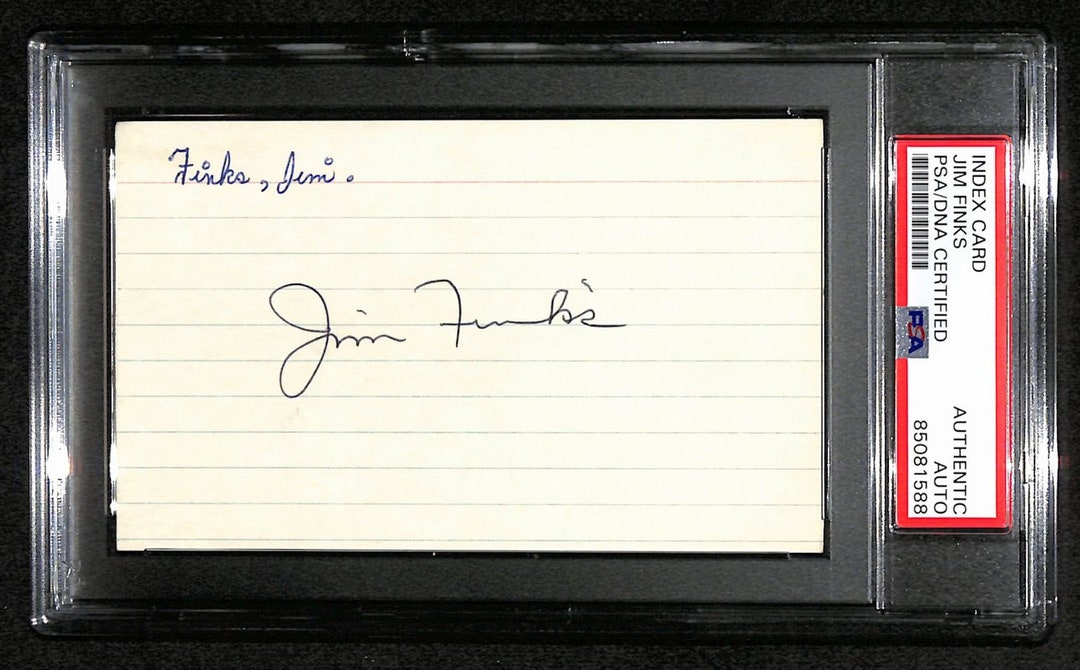 Finks, Jim.
Jim Finks
INDEX CARD
JIM FINKS
PSA/DNA CERTIFIED
PSA
AUTHENTIC
AUTO
85081588